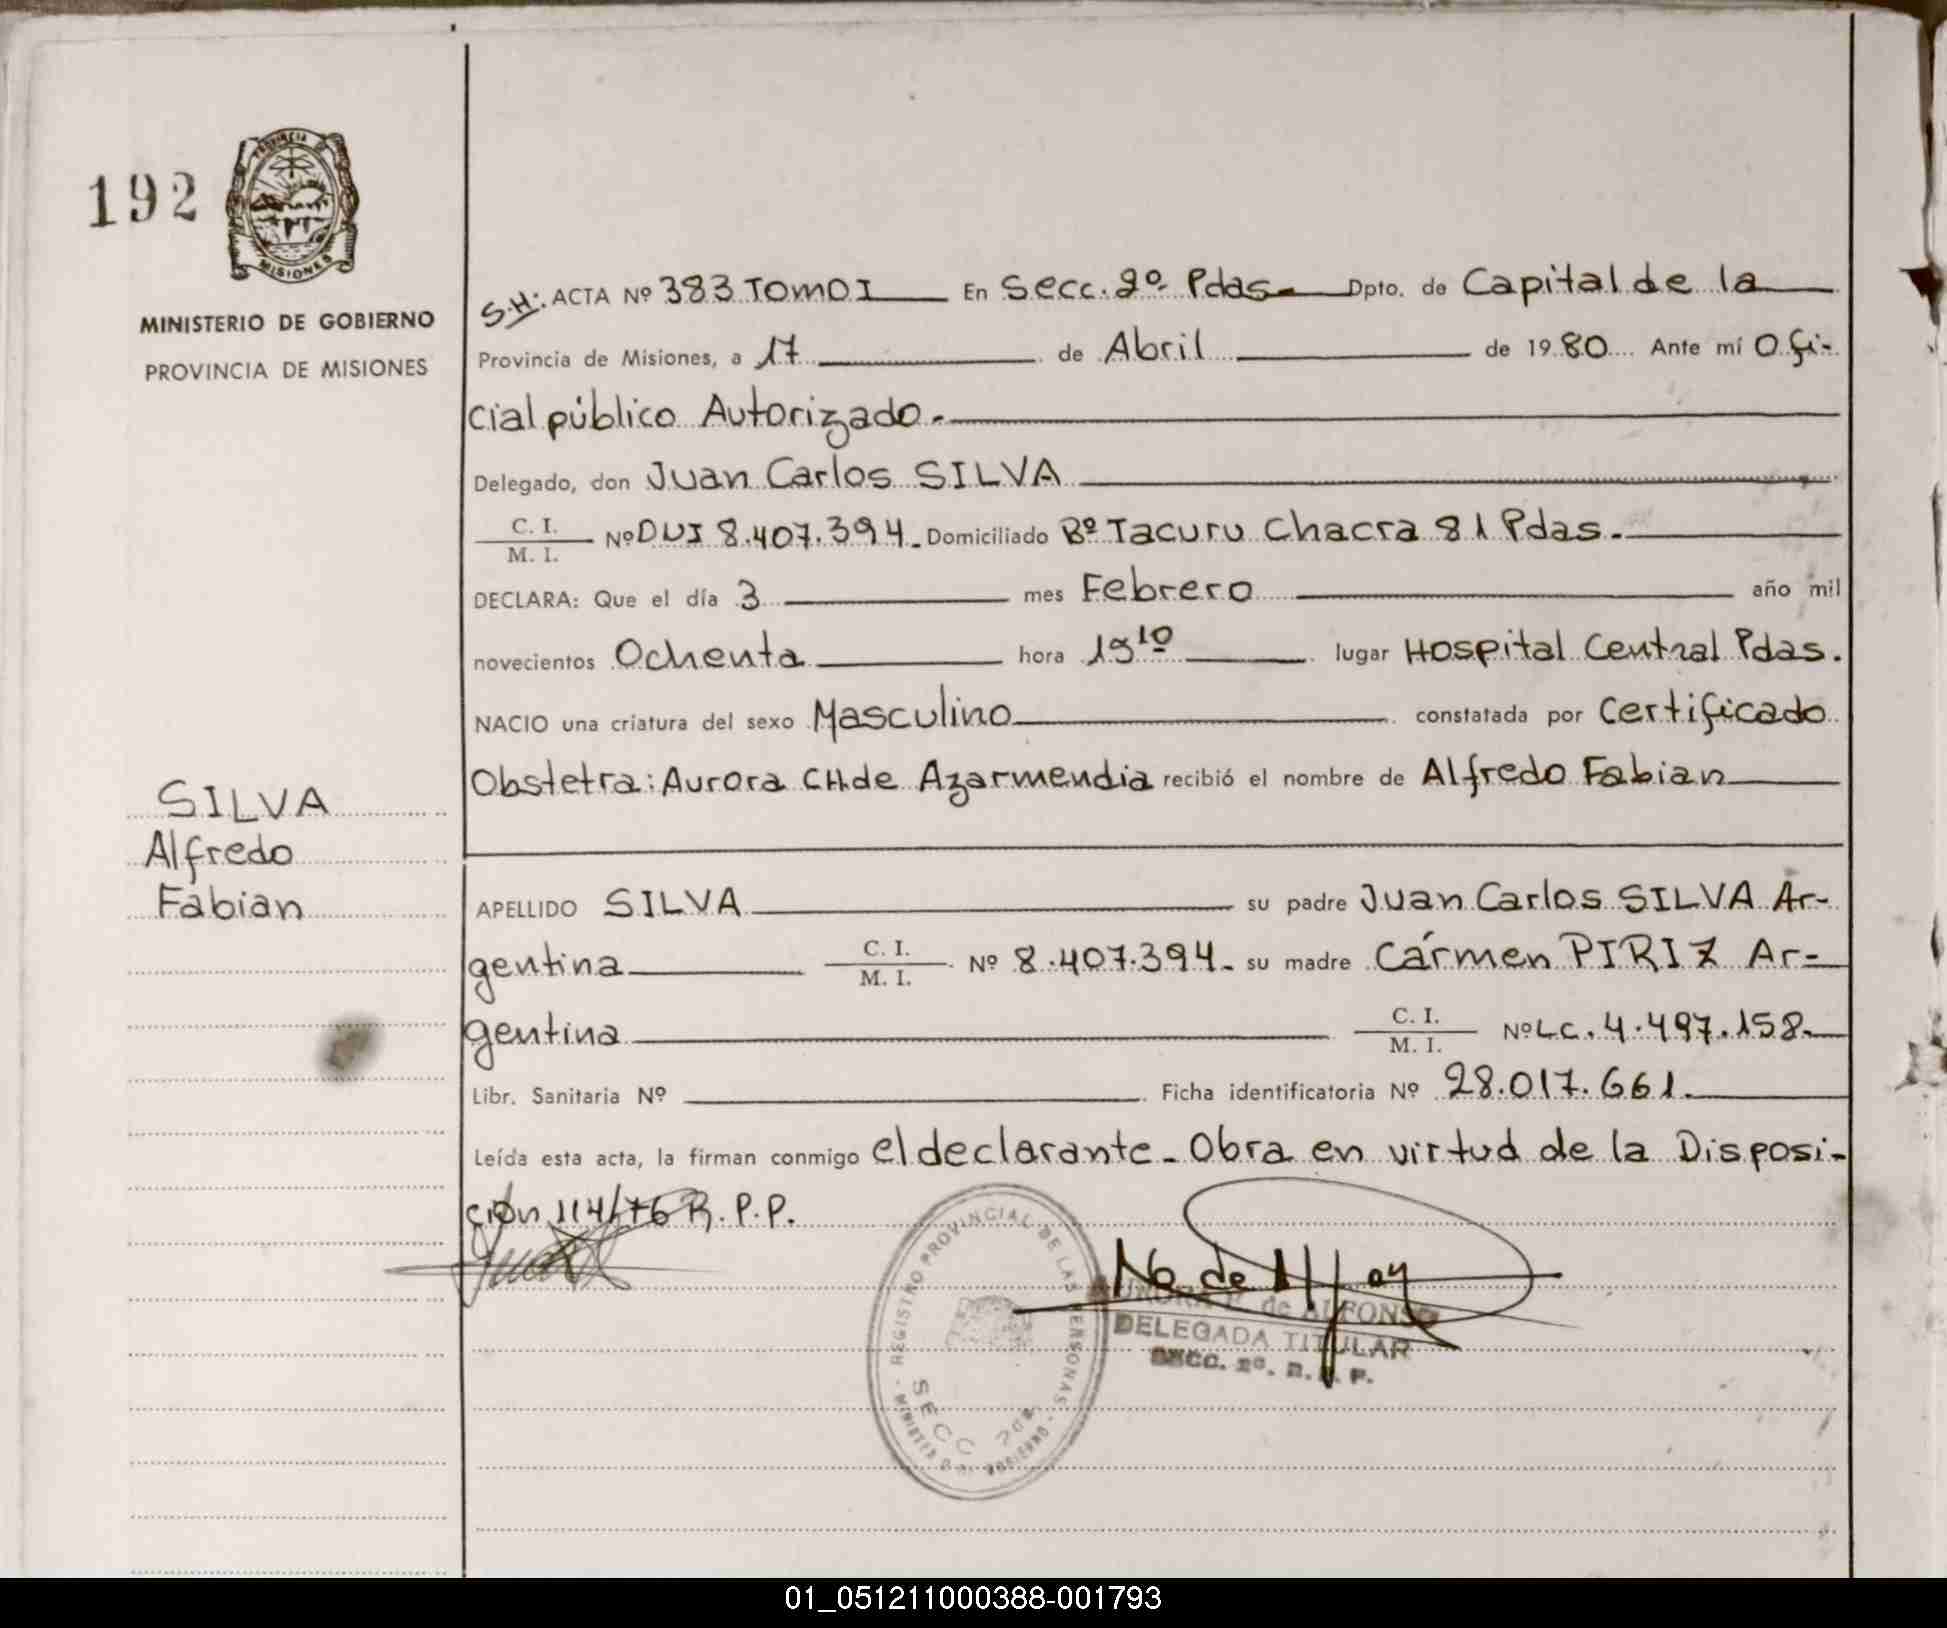 192
PROVINCIA DE
MISIONES
MINISTERIO DE GOBIERNO
PROVINCIA DE MISIONES
S.H: ACTA Nº 383 TOMO I En Secc. 2º Pdas. Dpto. de Capital de la
Provincia de Misiones, a 17 de Abril de 1980 Ante mí Ofi-
cial público Autorizado.-
Delegado, don Juan Carlos SILVA
C. I.
M. I. Nº DUI 8.407.394. Domiciliado Bº Tacuru Chacra 81 Pdas.-
DECLARA: Que el día 3 mes Febrero año mil
novecientos Ochenta hora 19 10 lugar Hospital Central Pdas.
NACIO una criatura del sexo Masculino constatada por Certificado
Obstetra: Aurora CH de Azarmendia recibió el nombre de Alfredo Fabian
SILVA
Alfredo
Fabian
APELLIDO SILVA su padre Juan Carlos SILVA Ar-
gentina C. I.
M. I. Nº 8.407.394.- su madre Cármen PIRIZ Ar-
gentina C. I.
M. I. Nº LC. 4.497.158.-
Libr. Sanitaria Nº Ficha identificatoria Nº 28.017.661.
Leída esta acta, la firman conmigo el declarante.- Obra en virtud de la Disposi-
ción 114/76 R.P.P.
REGISTRO PROVINCIAL DE LAS PERSONAS
SECC
de ALFONSO
DELEGADA TITULAR
SECC. 2º. R. P. P.
01_051211000388-001793